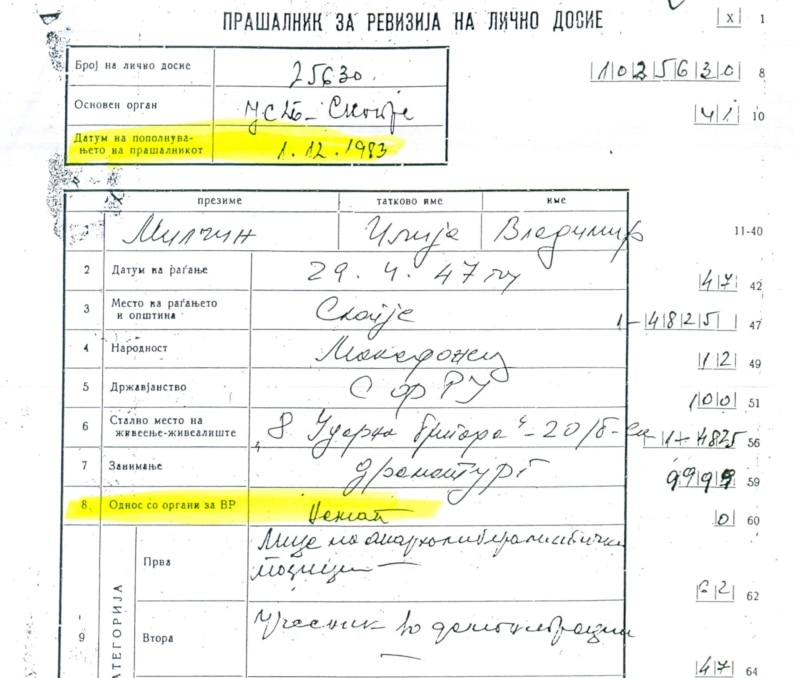 ПРАШАЛНИК ЗА РЕВИЗИЈА НА ЛИЧНО ДОСИЕ
x 1
Број на лично досие 25630. 1025630 8
Основен орган УСДБ - Скопје 41 10
Датум на пополнува-
њето на прашалникот 1.12.1983
презиме татково име име
Милчин Илија Владимир 11-40
2 Датум на раѓање 29.4.47 47 42
3 Место на раѓањето
и општина Скопје 1-4825 47
4 Народност Македонец 12 49
5 Државјанство СФРЈ 100 51
6 Стално место на
живеење-живеалиште „8 Ударна бригада“-20/б-Ск 1-4825 56
7 Занимање драматург 9999 59
8. Однос со органи за ВР Немат 0 60
9 АТЕГОРИЈА
Прва Лице на анархолибералистички
позиции — 62 62
Втора Учесник во демонстрации
— 47 64